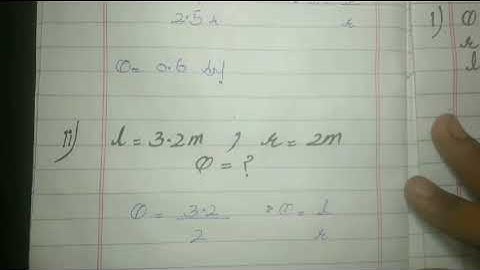 2.5 r
r
θ = 0.6 rad
ii) l = 3.2m , r = 2m
θ = ?
θ = 3.2 / 2 ∵ θ = l / r
1) θ
r
l